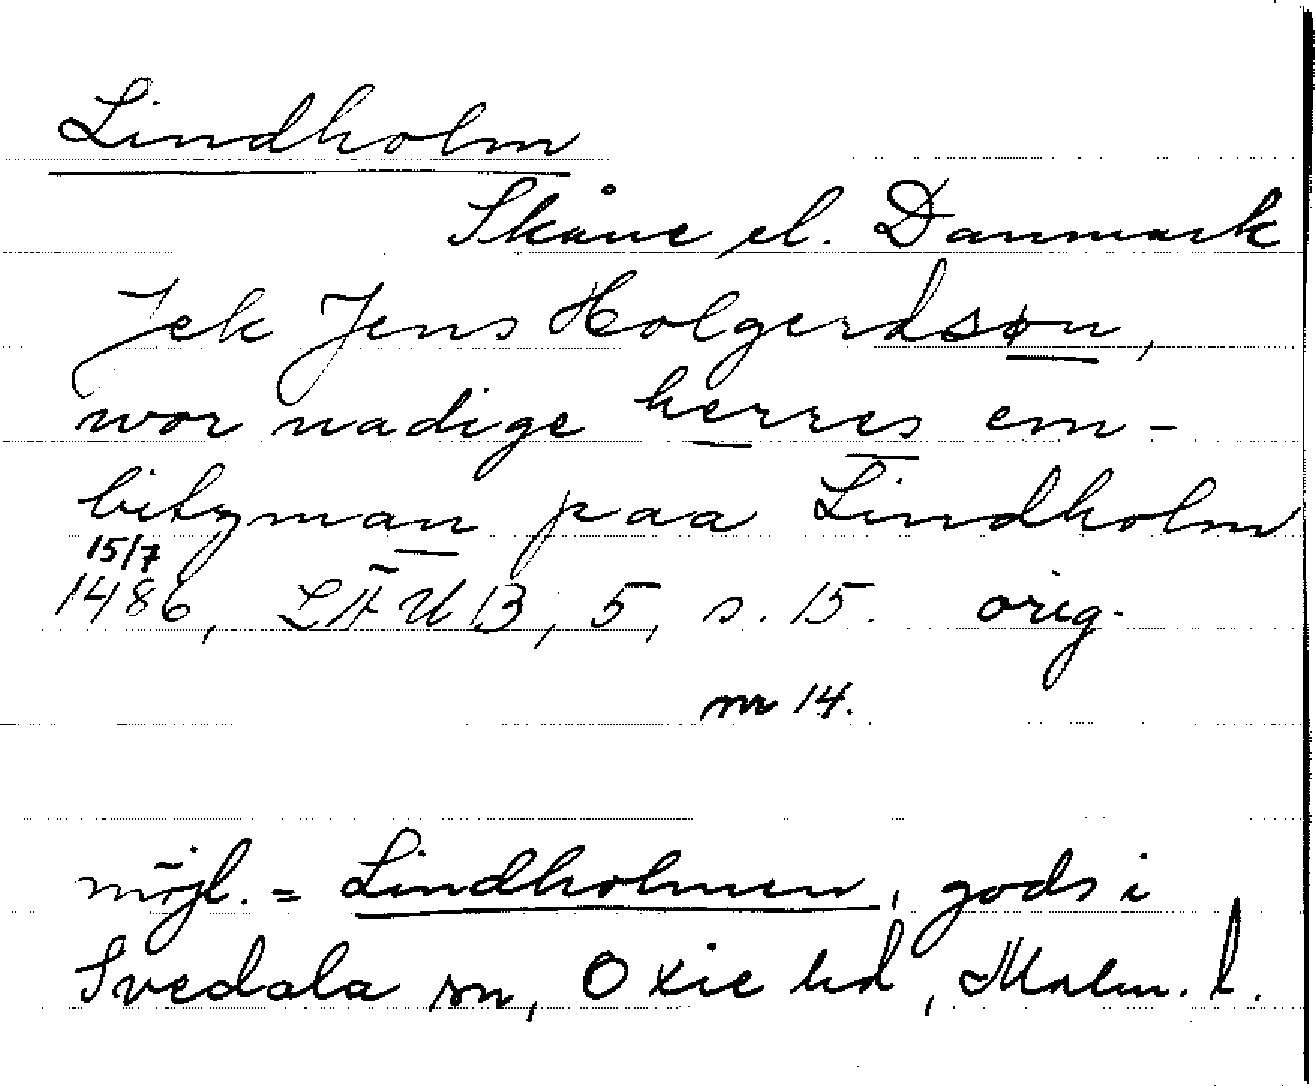 Lindholm
Skåne el. Danmark
Jek Jens Holgerdsøn,
wor nadige herres em-
bitzman paa Lindholm
15/7
1486, LÄUB, 5, s. 15. orig.
nr 14.
möjl. = Lindholmen, gods i
Svedala sn, Oxie hd, Malm. l.